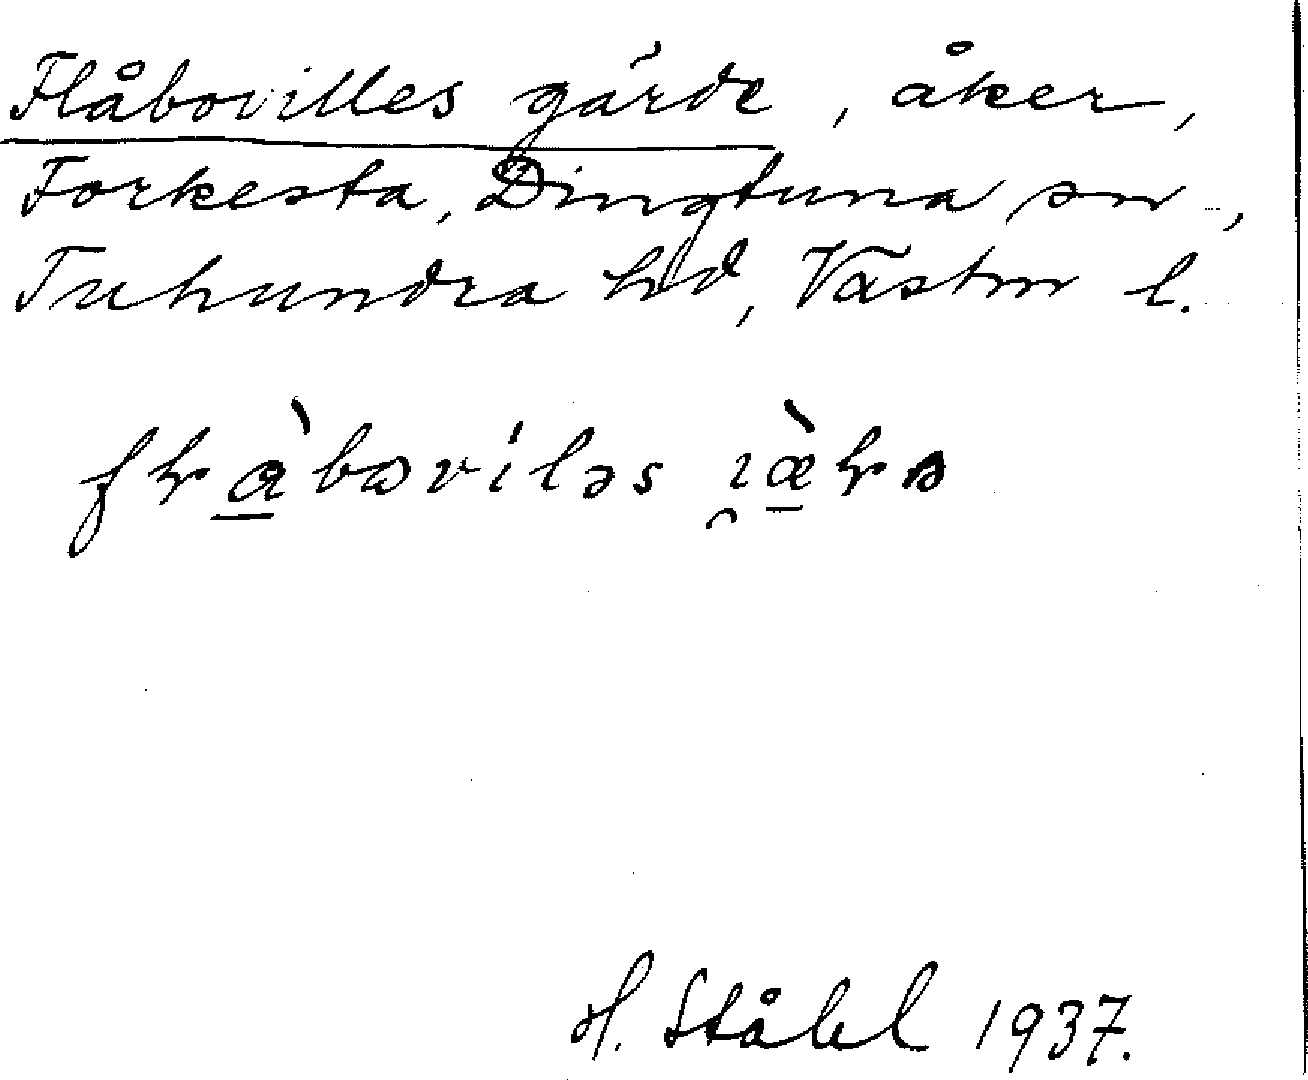 Flåbovilles gärde, åker,
Forkesta, Dingtuna sn,
Tuhundra hd, Västm l.
H. Ståhl 1937.